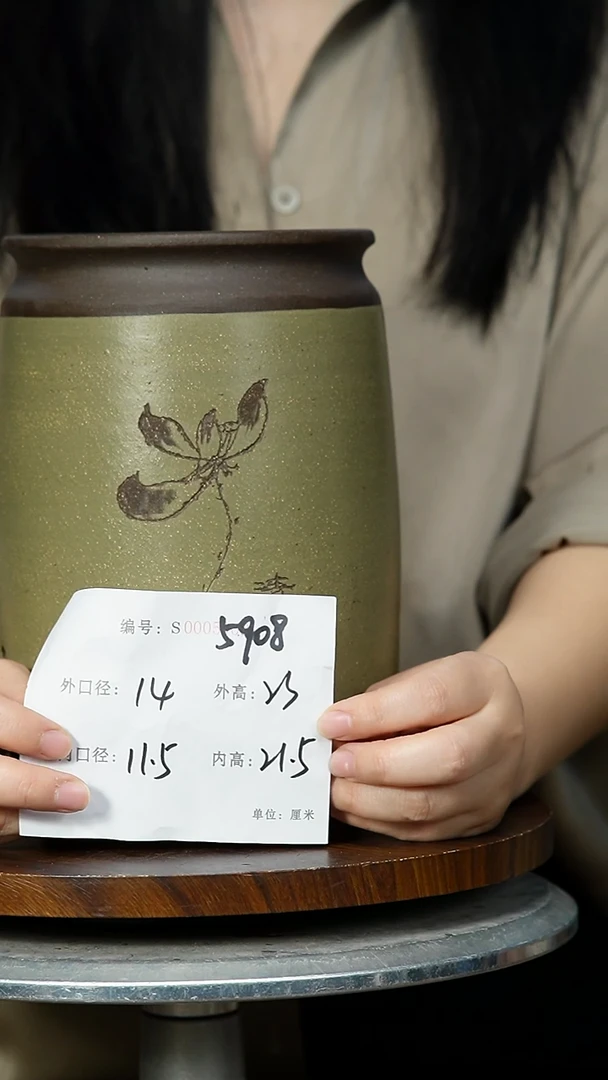 编号：S0005908
外口径：14 外高：23
内口径：11.5 内高：21.5
单位：厘米